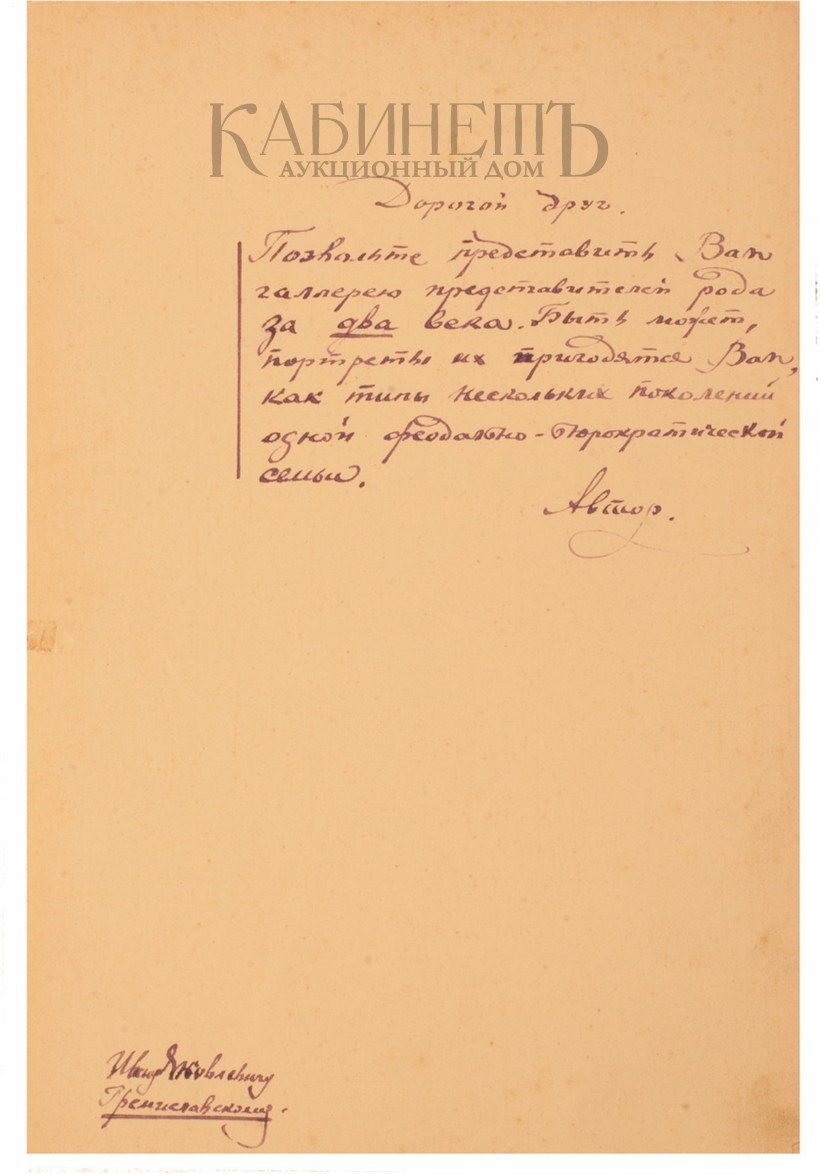 КАБИНЕТЪ
АУКЦИОННЫЙ ДОМ
Дорогой друг.
Позвольте представить Вам
галлерею представителей рода
за два века. Быть может,
портреты их пригодятся Вам,
как типы нескольких поколений
одной феодально-бюрократической
семьи.
Автор.
Ивану Яковлевичу
Гремиславскому.